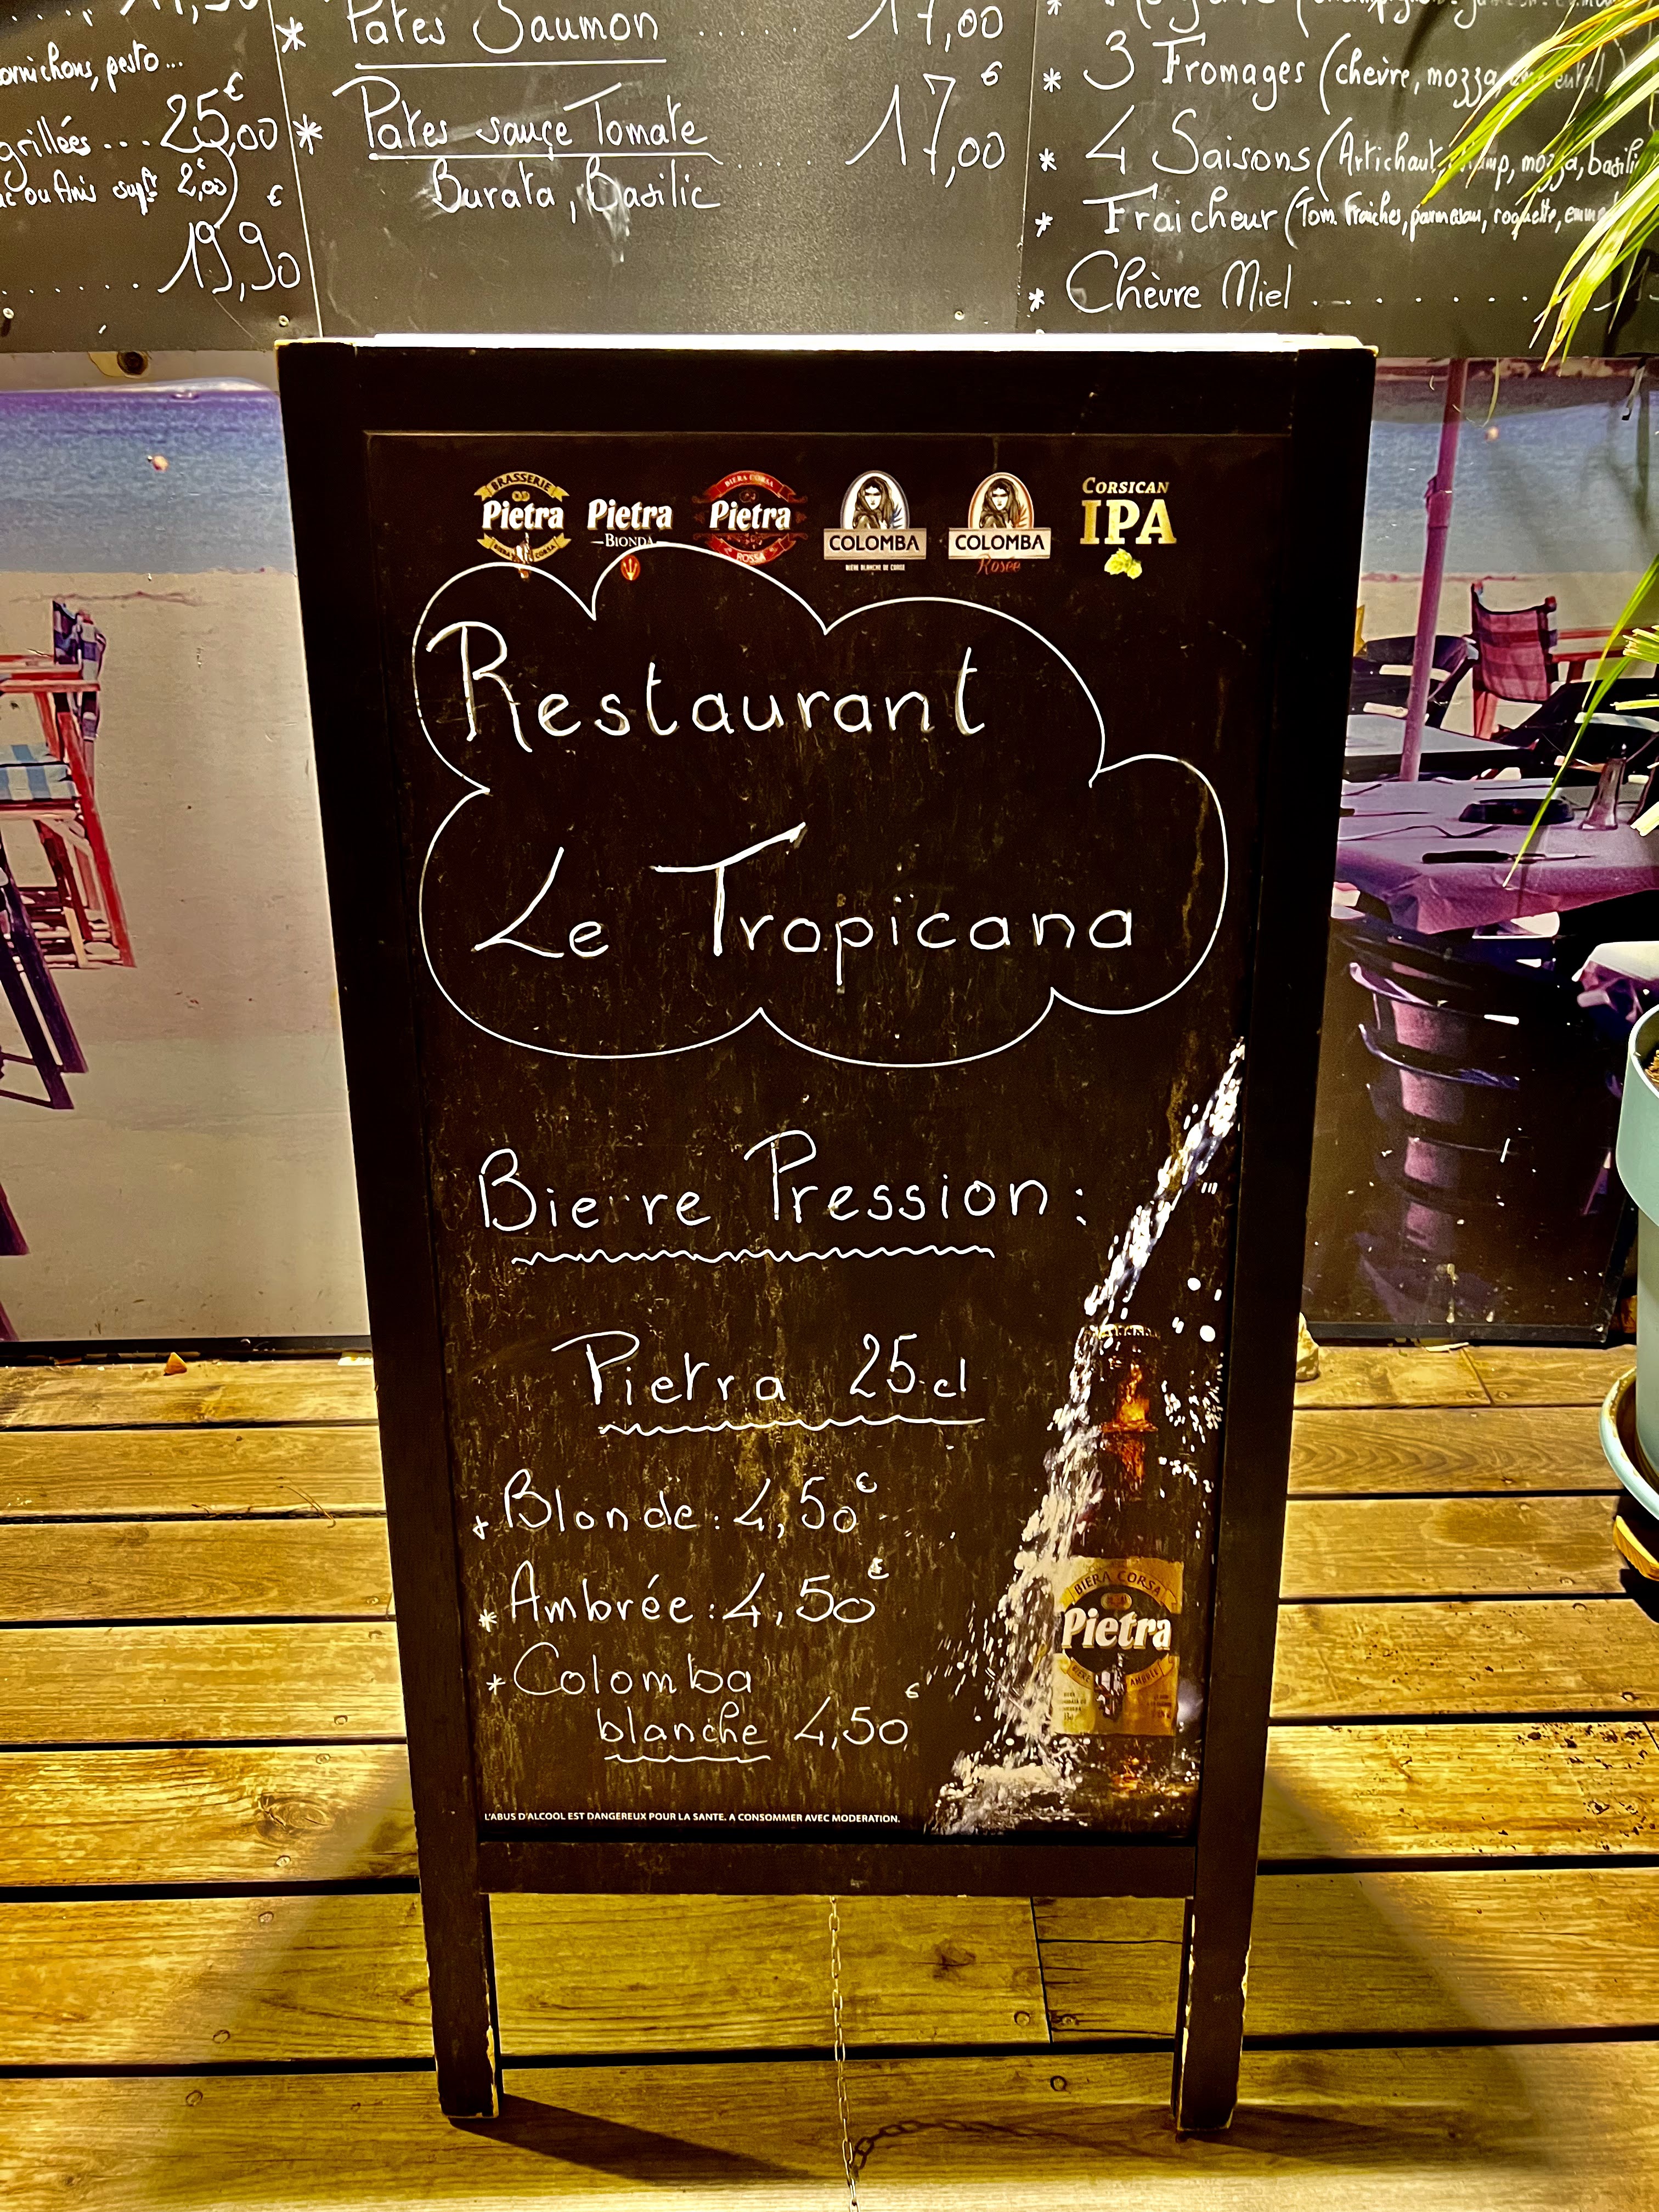 Pates Saumon ..... 17,00
* Pates sauce Tomate ..... 17,00 €
Burata, Basilic
cornichons, pesto...
grillées ... 25,00 €
ou Anis supt 2,00 €)
...... 19,90 €
* 3 Fromages (chèvre, mozza,
* 4 Saisons (Artichaut, mozza, basilic
* Fraicheur (Tom. Fraiches, parmesan, roquette,
* Chèvre Miel ........
BRASSERIE Pietra BIERA CORSA
Pietra BIONDA
BIERA CORSA Pietra ROSSA
COLOMBA BIÈRE BLANCHE DE CORSE
COLOMBA Rosée
CORSICAN IPA
Restaurant
Le Tropicana
Bierre Pression :
Pietra 25 cl
* Blonde : 4,50 €
* Ambrée : 4,50 €
* Colomba
blanche 4,50 €
BIERA CORSA
Pietra
BIÈRE AMBRÉE
L'ABUS D'ALCOOL EST DANGEREUX POUR LA SANTE. A CONSOMMER AVEC MODERATION.